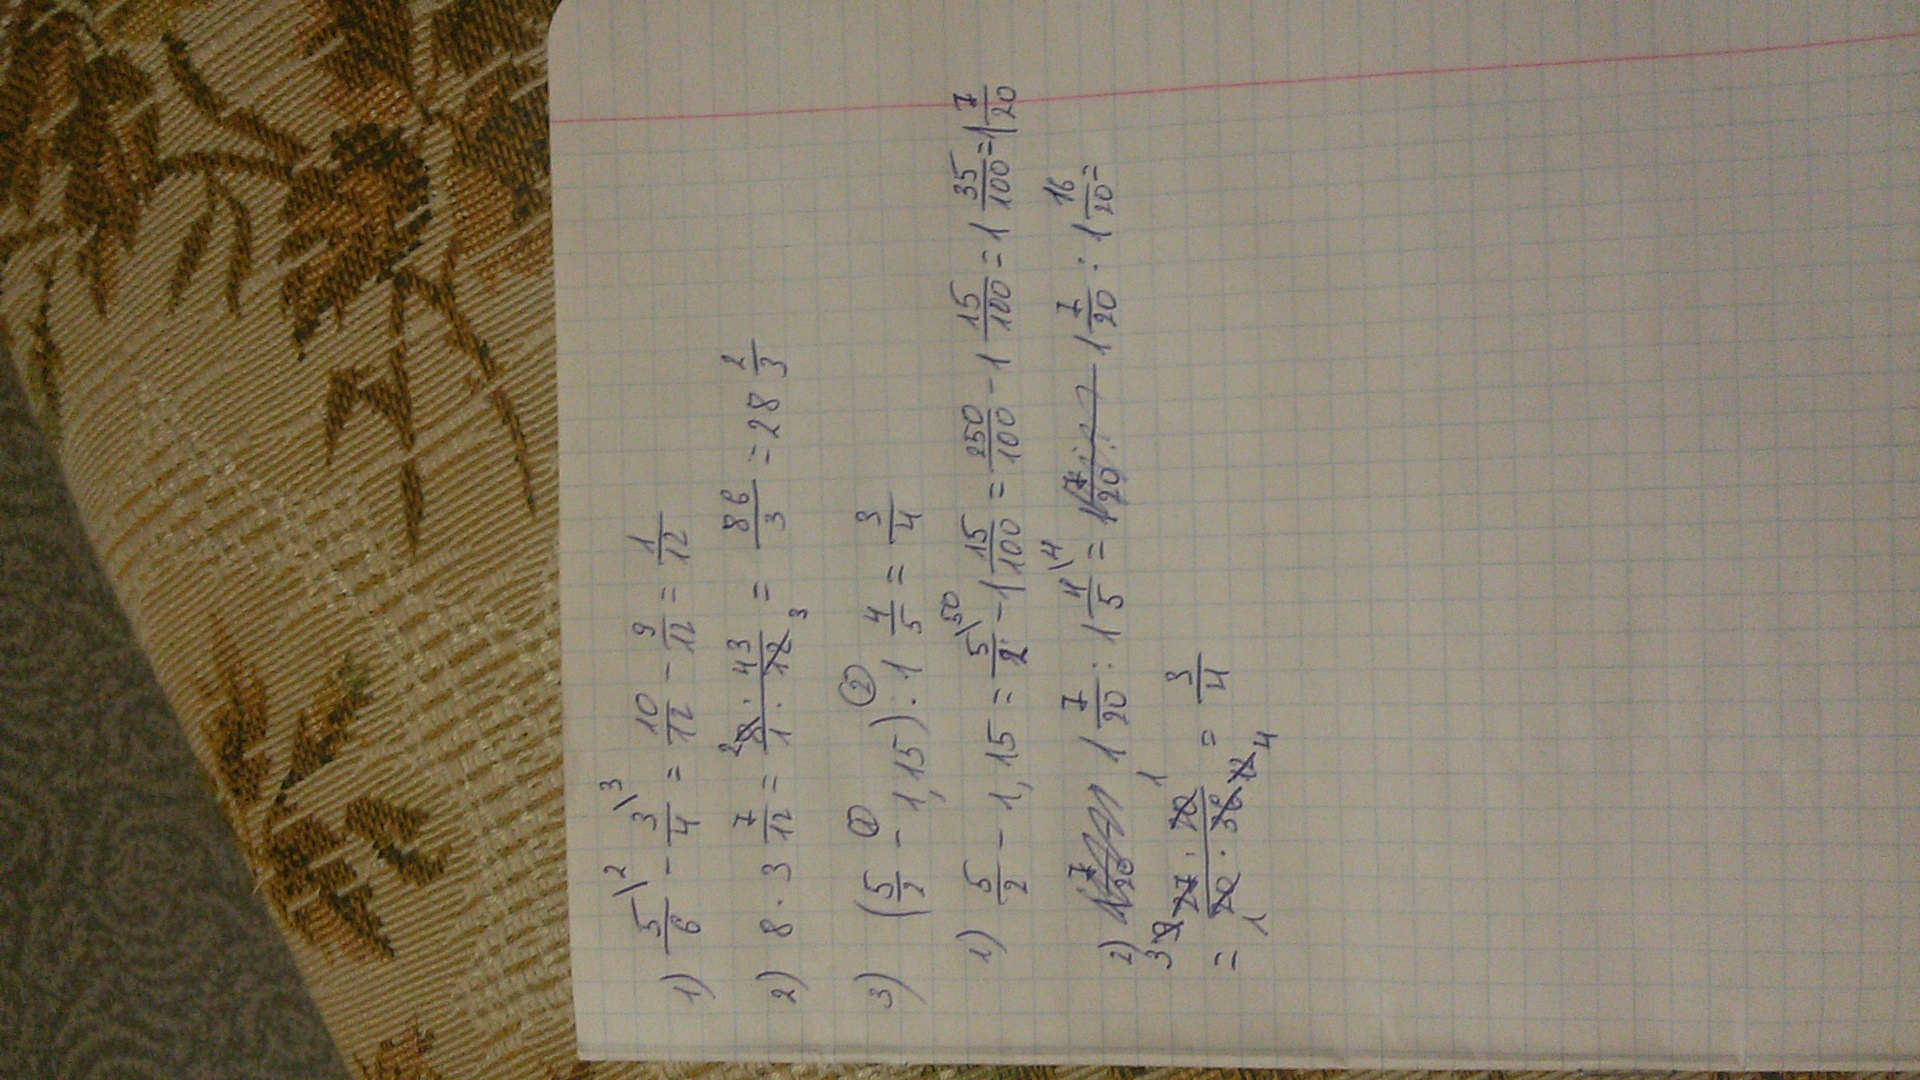 1) 5/6\2 - 3/4\3 = 10/12 - 9/12 = 1/12
2) 8 · 3 7/12 = 2 8 · 43 / 1 · 12 3 = 86/3 = 28 2/3
3) (5/2 - 1,15) : 1 4/5 = 3/4
1 2
1) 5/2 - 1,15 = 5/2\50 - 1 15/100 = 250/100 - 1 15/100 = 1 35/100 = 1 7/20
2) 1 7/20 1 7/20 : 1 4/5\4 = 1 7/20 : 1 7/20 : 1 16/20 =
= 3 9 27 · 20 1 / 20 · 36 12 4 1 = 3/4